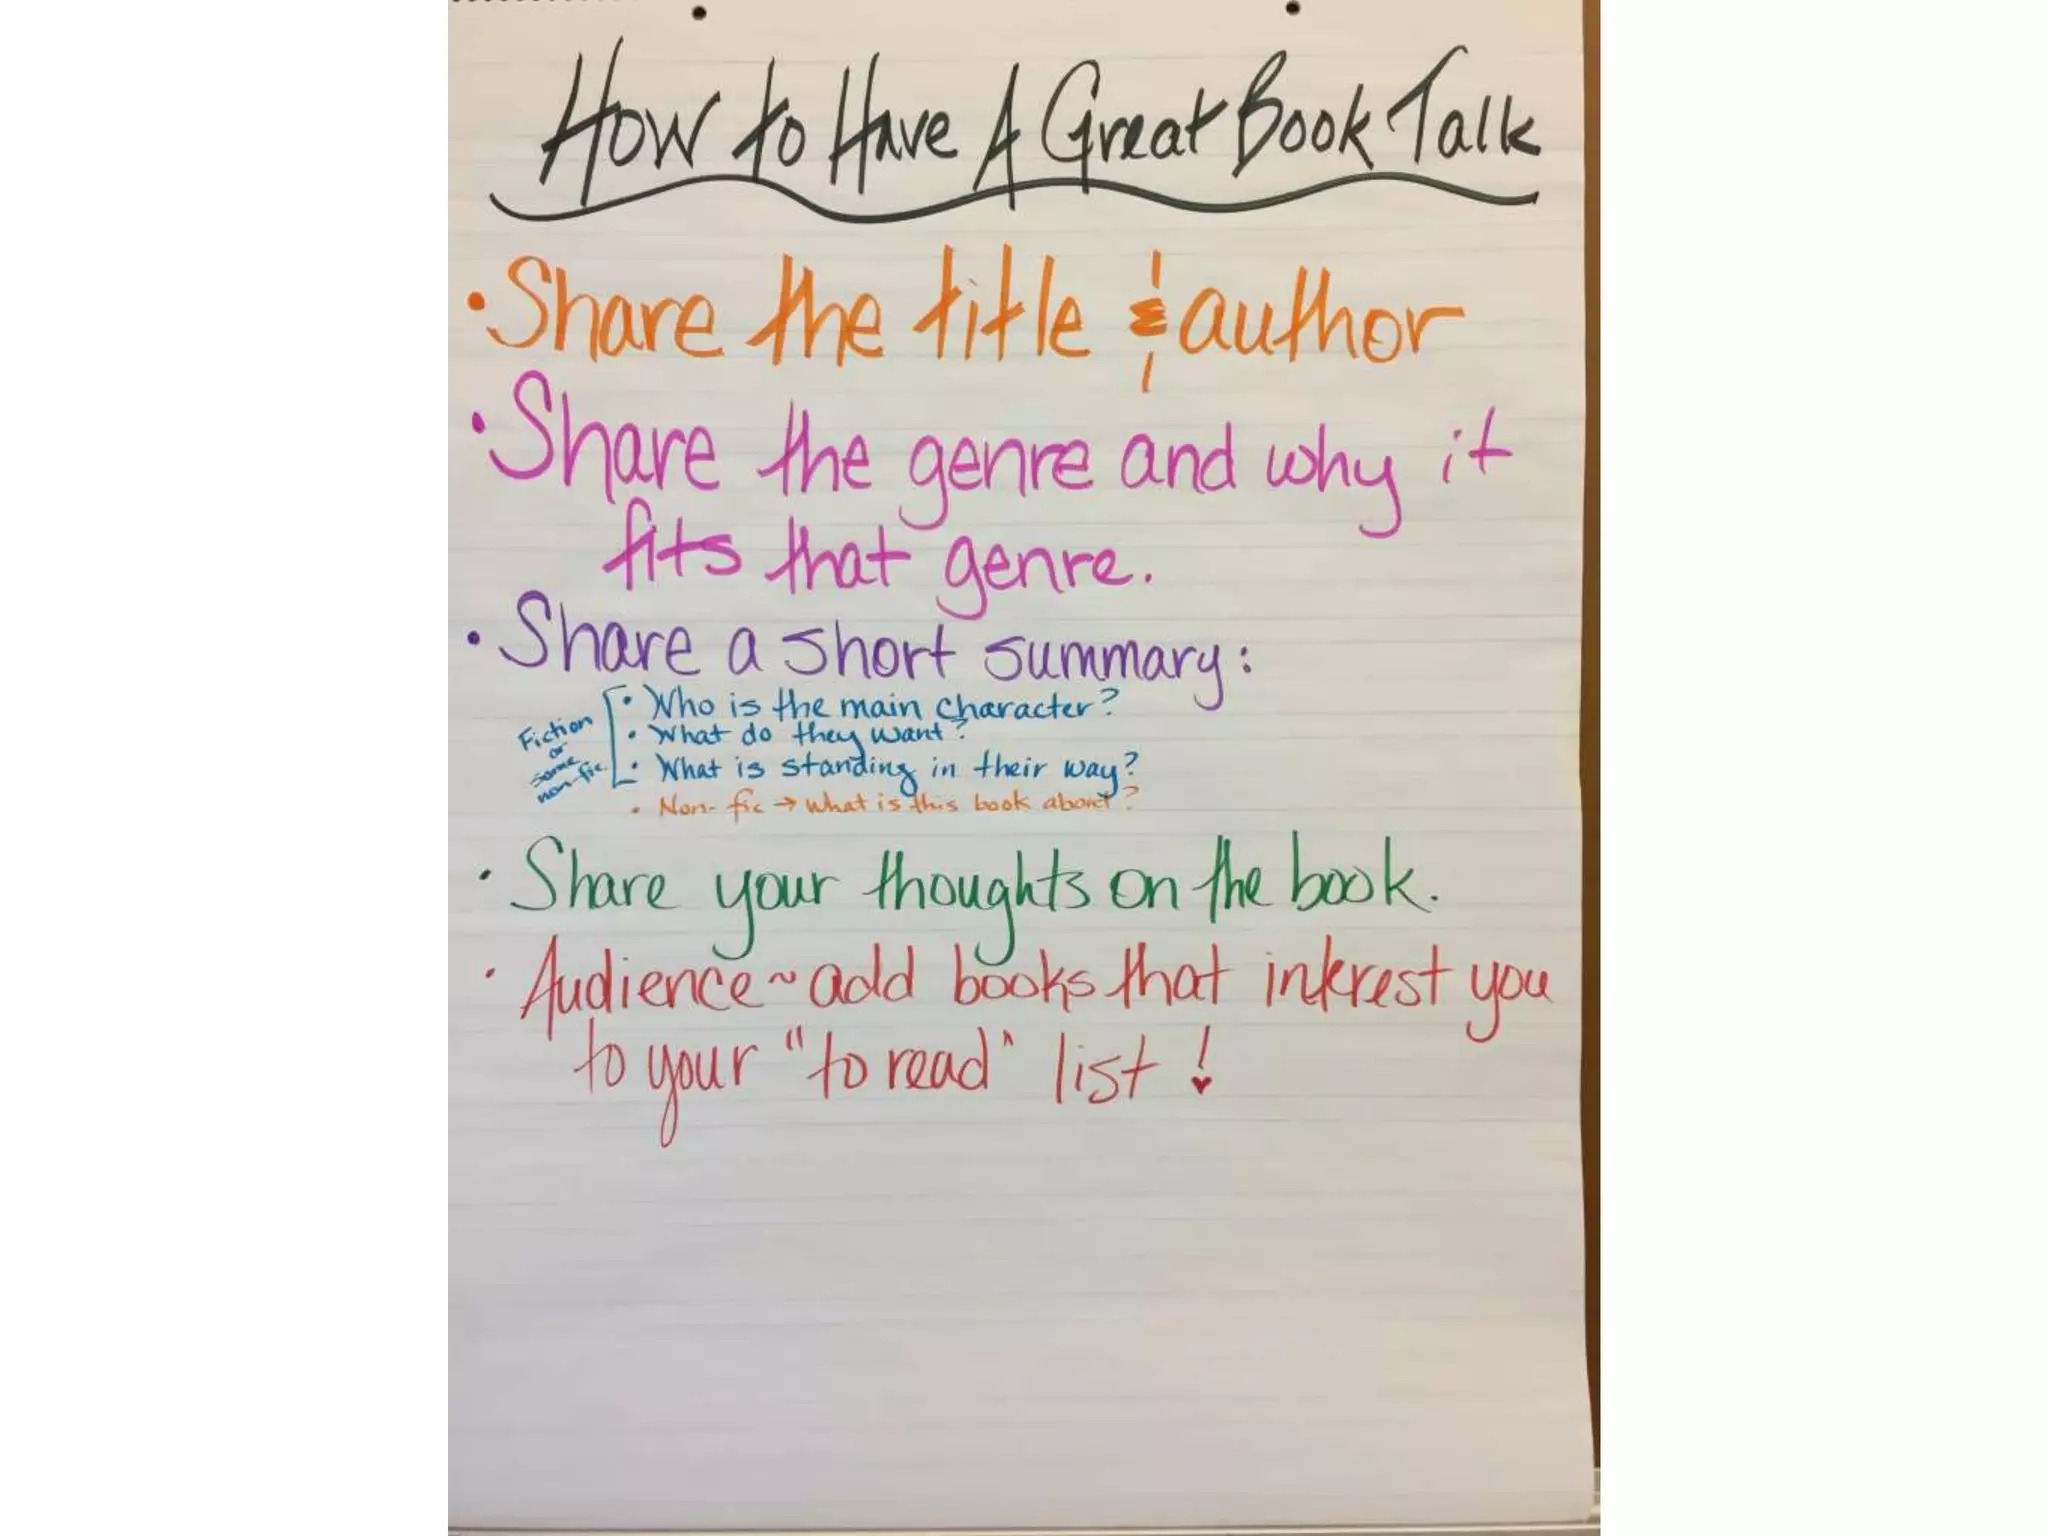 How to Have A Great Book Talk
• Share the title & author
• Share the genre and why it
fits that genre.
• Share a short summary:
Fiction
or
some
non-fic
• Who is the main character?
• What do they want?
• What is standing in their way?
• Non-fic → What is this book about?
• Share your thoughts on the book.
• Audience ~ add books that interest you
to your "to read" list!